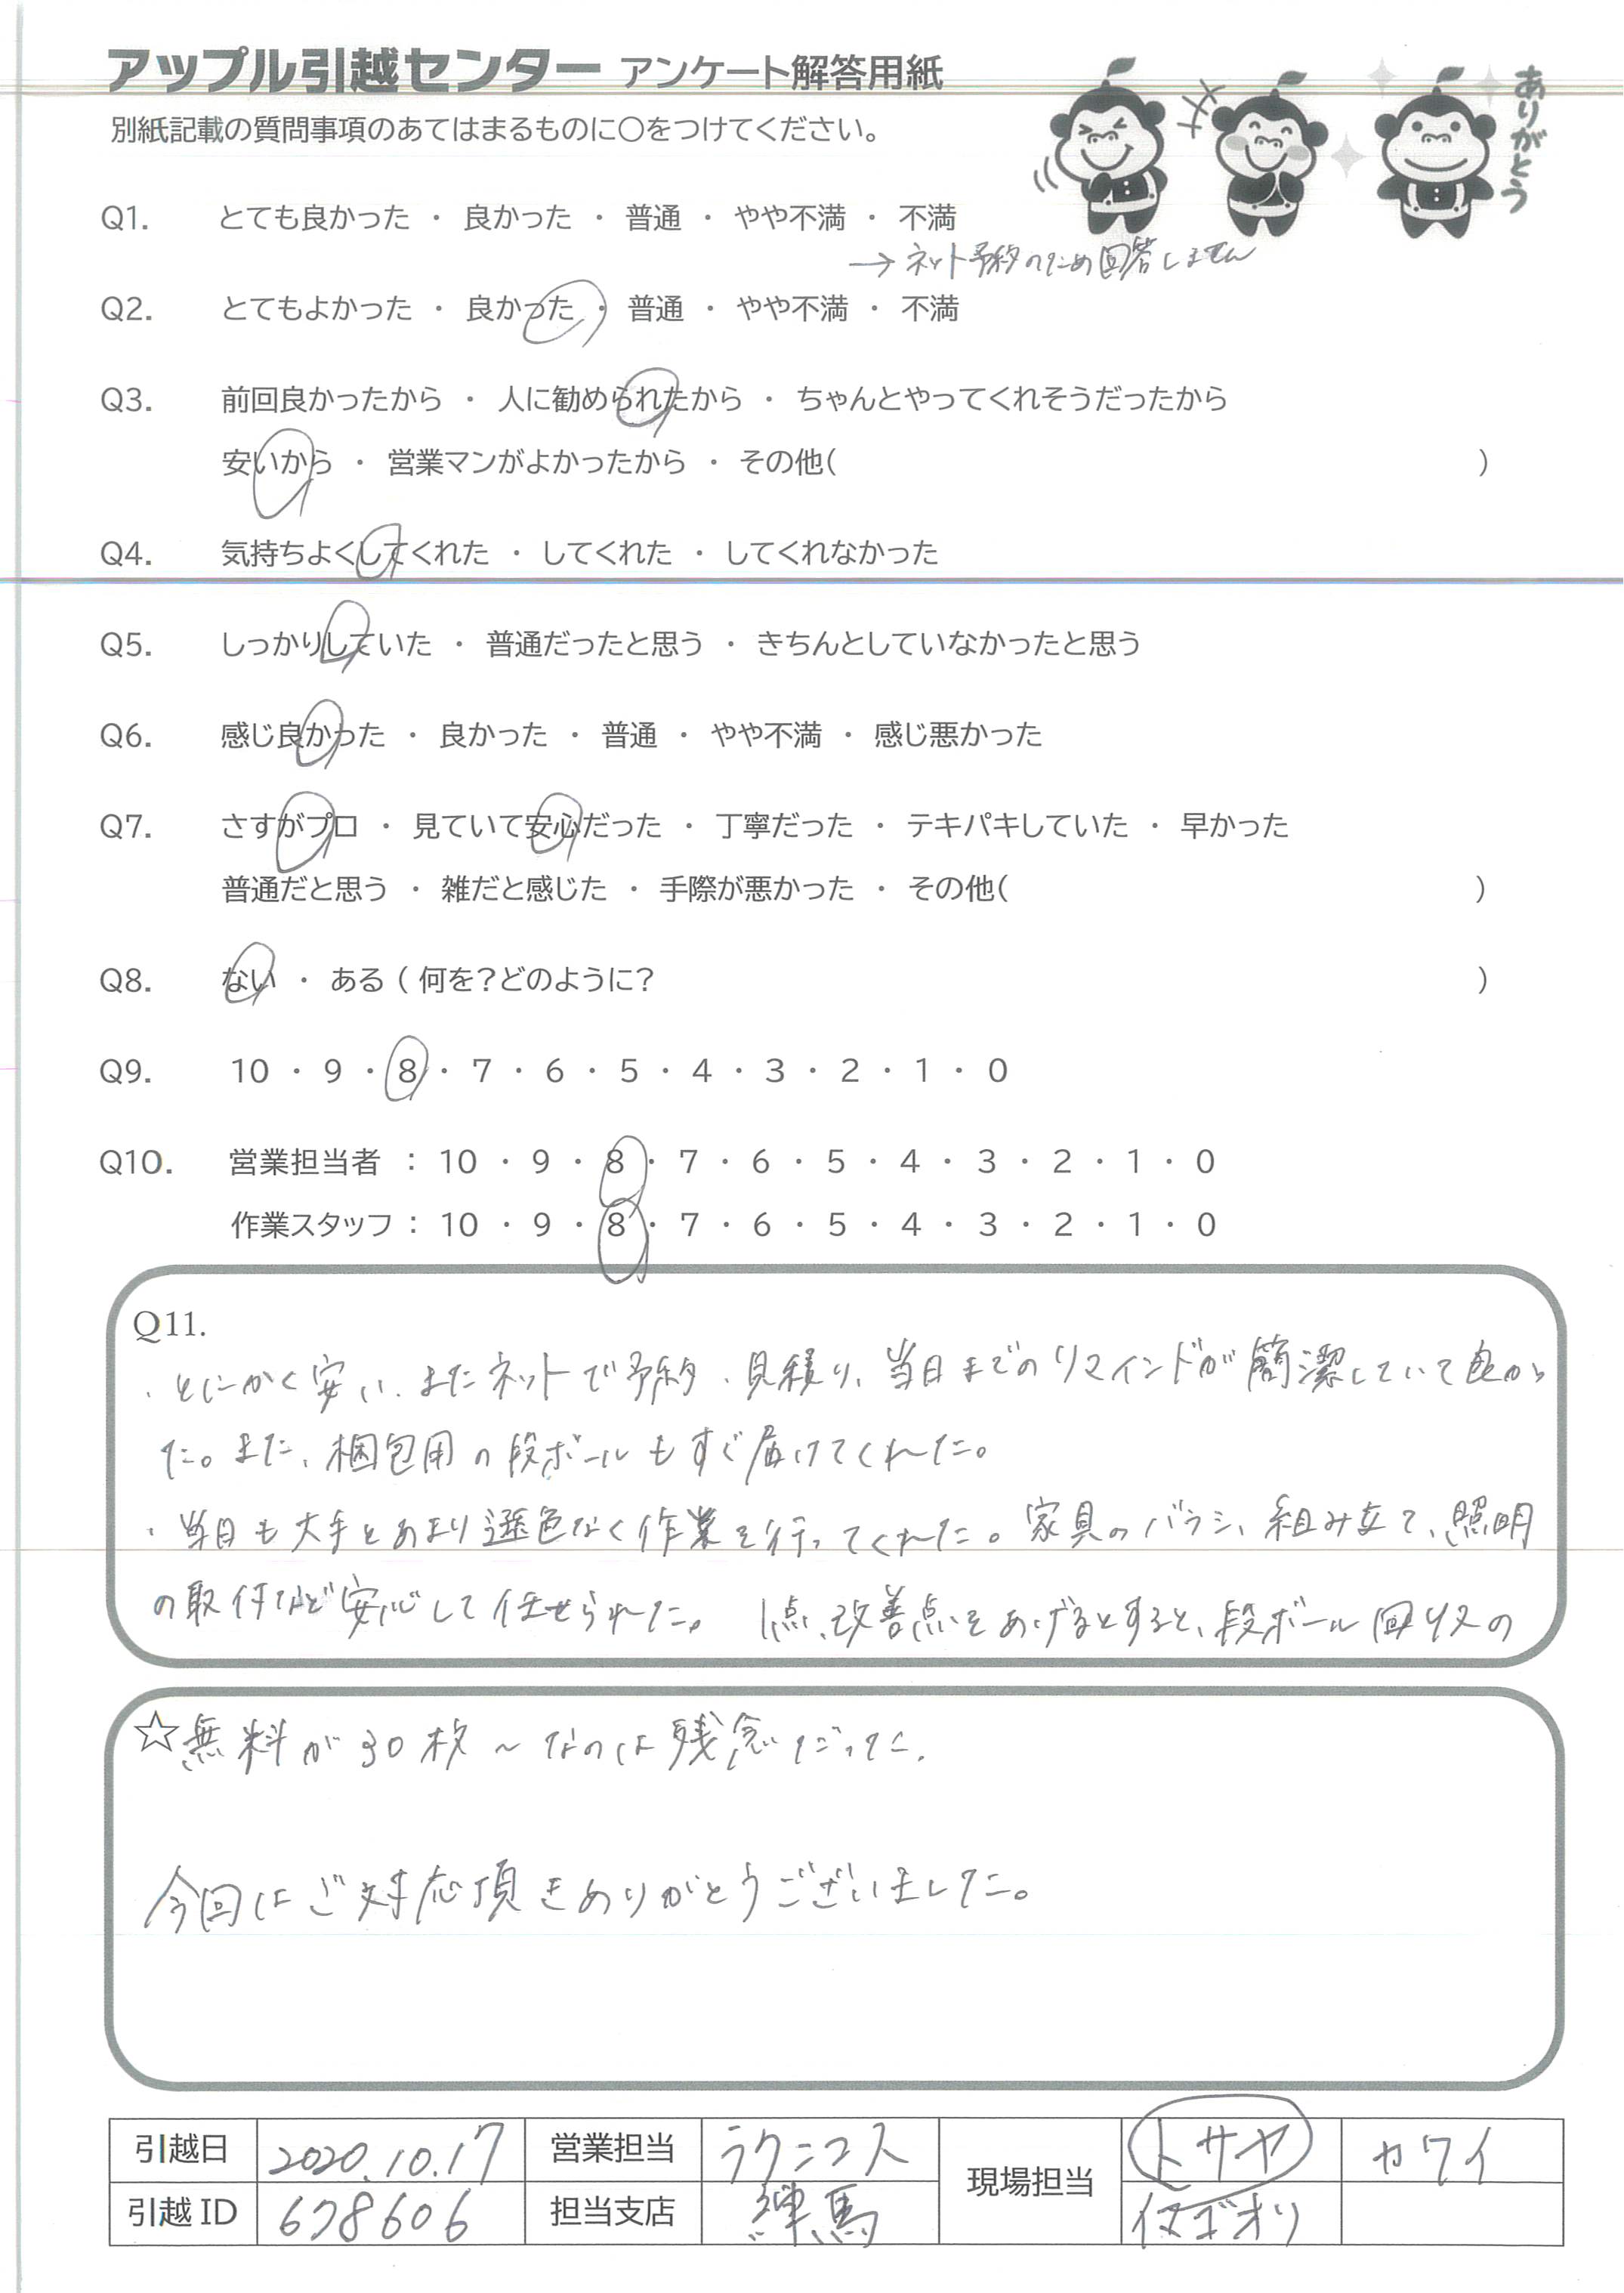 アップル引越センター アンケート解答用紙
ありがとう
別紙記載の質問事項のあてはまるものに○をつけてください。
Q1. とても良かった ・ 良かった ・ 普通 ・ やや不満 ・ 不満
→ネット予約のため回答しません
Q2. とてもよかった ・ 良かった ・ 普通 ・ やや不満 ・ 不満
Q3. 前回良かったから ・ 人に勧められたから ・ ちゃんとやってくれそうだったから
安いから ・ 営業マンがよかったから ・ その他( )
Q4. 気持ちよくしてくれた ・ してくれた ・ してくれなかった
Q5. しっかりしていた ・ 普通だったと思う ・ きちんとしていなかったと思う
Q6. 感じ良かった ・ 良かった ・ 普通 ・ やや不満 ・ 感じ悪かった
Q7. さすがプロ ・ 見ていて安心だった ・ 丁寧だった ・ テキパキしていた ・ 早かった
普通だと思う ・ 雑だと感じた ・ 手際が悪かった ・ その他( )
Q8. ない ・ ある ( 何を?どのように? )
Q9. 10 ・ 9 ・ 8 ・ 7 ・ 6 ・ 5 ・ 4 ・ 3 ・ 2 ・ 1 ・ 0
Q10. 営業担当者 : 10 ・ 9 ・ 8 ・ 7 ・ 6 ・ 5 ・ 4 ・ 3 ・ 2 ・ 1 ・ 0
作業スタッフ : 10 ・ 9 ・ 8 ・ 7 ・ 6 ・ 5 ・ 4 ・ 3 ・ 2 ・ 1 ・ 0
Q11.
・とにかく安い、またネットで予約、見積り、当日までのリマインドが簡潔していて良かっ
た。また、梱包用の段ボールもすぐ届けてくれた。
・当日も大手とあまり遜色なく作業を行ってくれた。家具のバラシ、組み立て、照明
の取付など安心して任せられた。 1点、改善点をあげるとすると、段ボール回収の
☆無料が30枚～なのは残念だった。
今回はご対応頂きありがとうございました。
引越日 2020.10.17 営業担当 ラクニコス 現場担当 トサヤ カワイ
引越ID 678606 担当支店 練馬